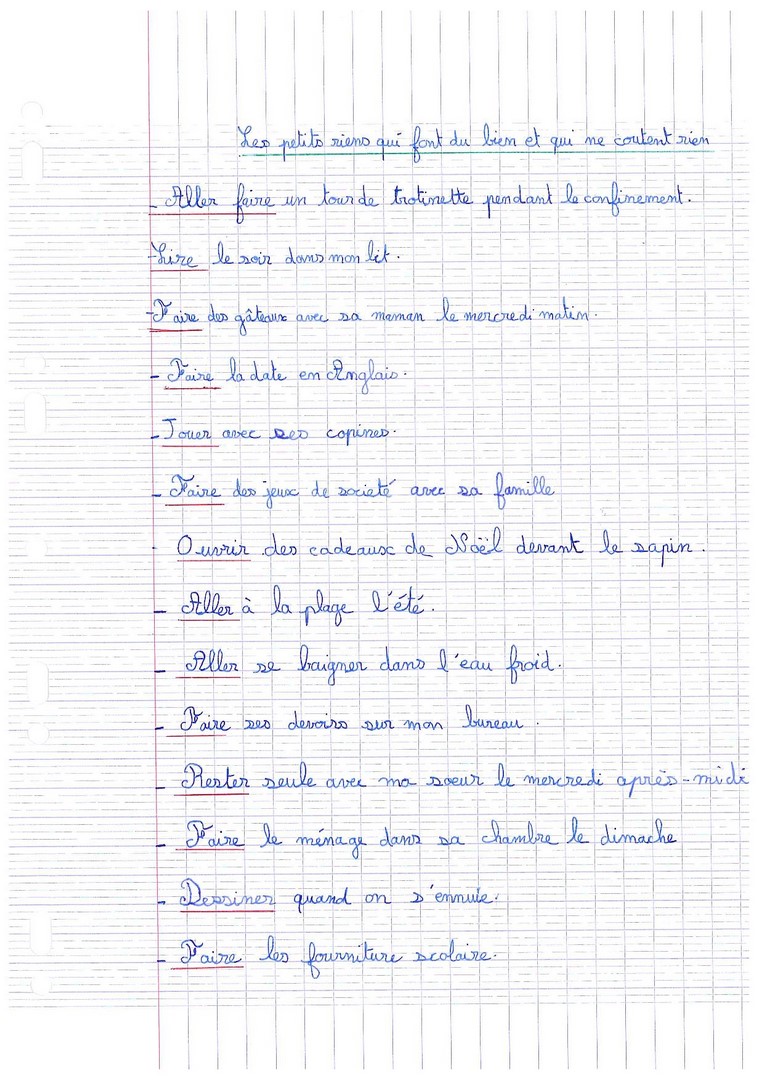 Les petits riens qui font du bien et qui ne coutent rien
- Aller faire un tour de trotinette pendant le confinement.
- Lire le soir dans mon lit.
- Faire des gâteaux avec sa maman le mercredi matin.
- Faire la date en Anglais.
- Jouer avec ses copines.
- Faire des jeux de societé avec sa famille
- Ouvrir des cadeaux de Noël devant le sapin.
- Aller à la plage l'été.
- Aller se baigner dans l'eau froid.
- Faire ses devoirs sur mon bureau.
- Rester seule avec ma soeur le mercredi après-midi
- Faire le ménage dans sa chambre le dimache
- Dessiner quand on s'ennuie.
- Faire les fourniture scolaire.